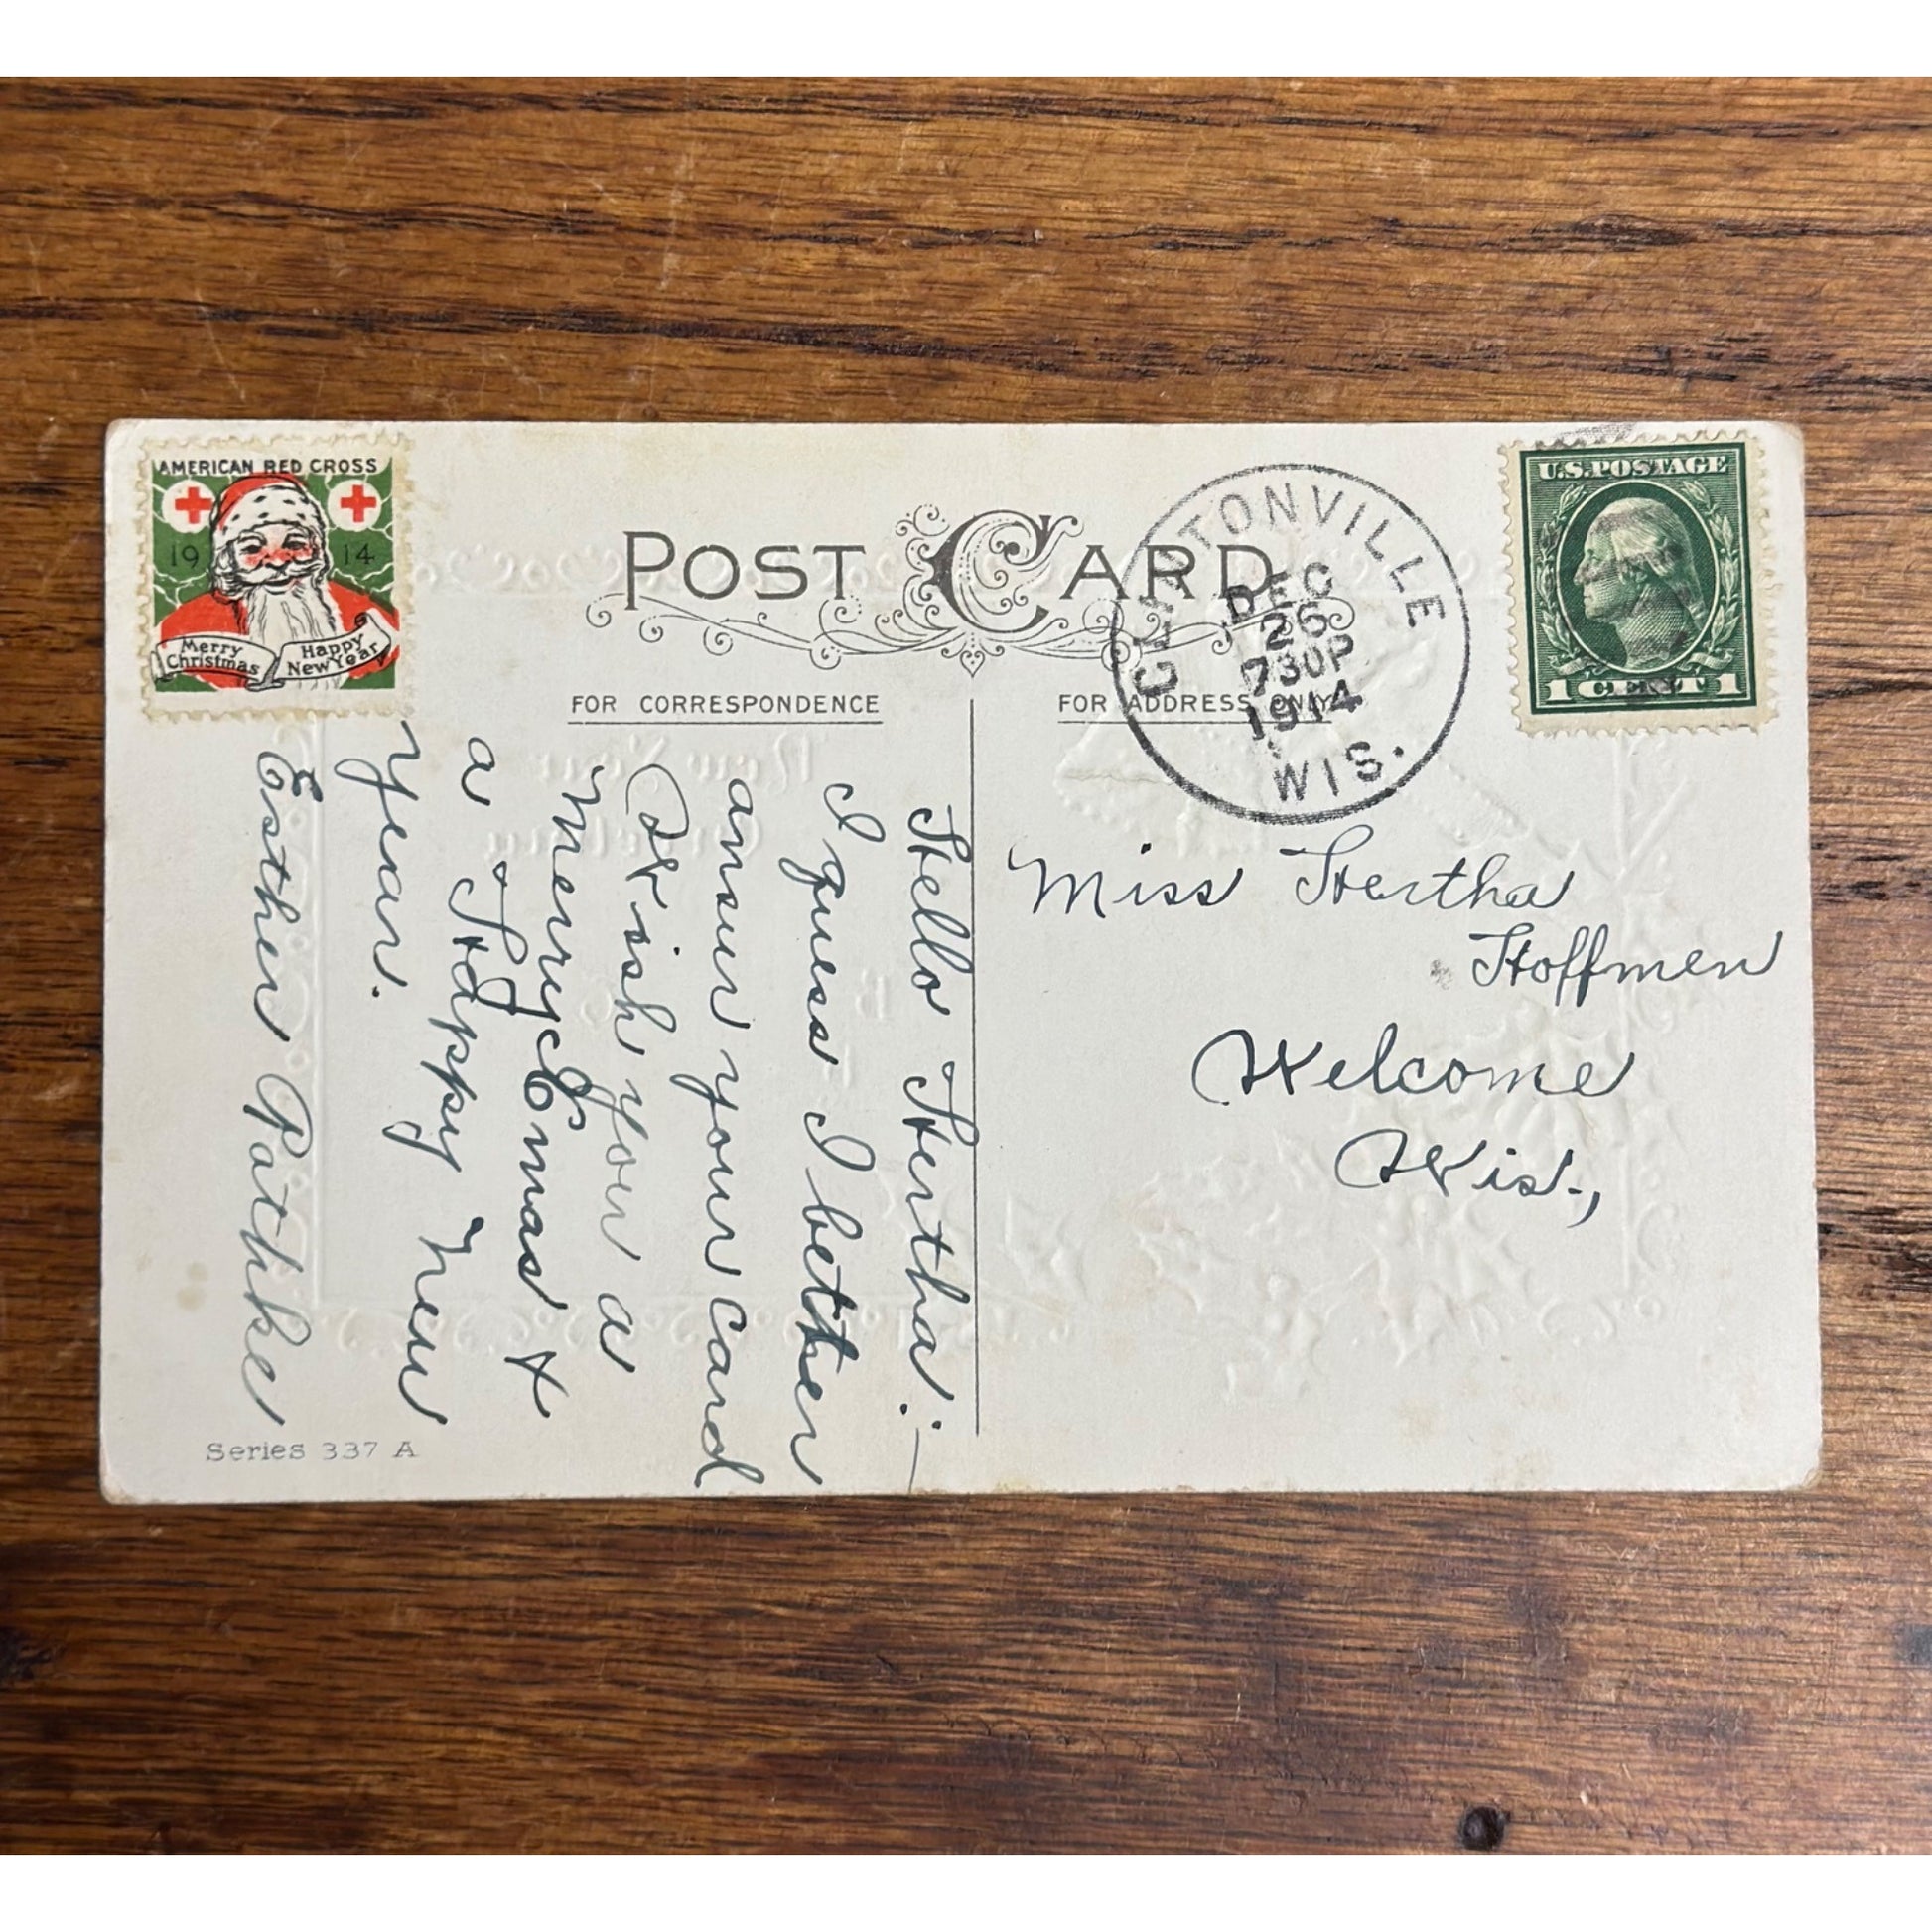 AMERICAN RED CROSS
19 14
Merry Christmas
Happy New Year
POST CARD
CLINTONVILLE
DEC
26
730P
1914
WIS.
U.S. POSTAGE
1 CENT 1
FOR CORRESPONDENCE
FOR ADDRESS ONLY
Hello Hertha:—
I guess I better
ansur your card
Wish you a
Merry Xmas &
a Happy New
year.
Esther Pathke
Miss Hertha
Hoffmen
Welcome
Wis.,
Series 337 A